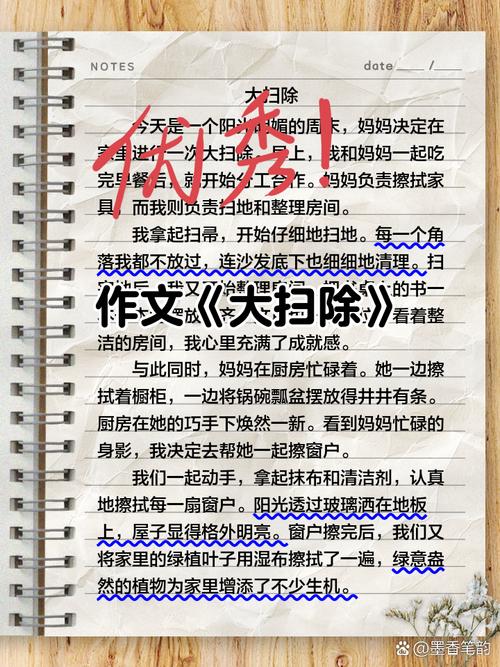 NOTES
date ___ / ___
大扫除
今天是一个阳光明媚的周末，妈妈决定在
家里进行一次大扫除。早上，我和妈妈一起吃
完早餐后，就开始分工合作。妈妈负责擦拭家
具，而我则负责扫地和整理房间。
优秀！
我拿起扫帚，开始仔细地扫地。每一个角
落我都不放过，连沙发底下也细细地清理。扫
的书一
看着整
作文《大扫除》
洁的房间，我心里充满了成就感。
与此同时，妈妈在厨房忙碌着。她一边擦
拭着橱柜，一边将锅碗瓢盆摆放得井井有条。
厨房在她的巧手下焕然一新。看到妈妈忙碌的
身影，我决定去帮她一起擦窗户。
我们一起动手，拿起抹布和清洁剂，认真
地擦拭每一扇窗户。阳光透过玻璃洒在地板
上，屋子显得格外明亮。窗户擦完后，我们又
将家里的绿植叶子用湿布擦拭了一遍，绿意盎
然的植物为家里增添了不少生机。
@墨香笔韵